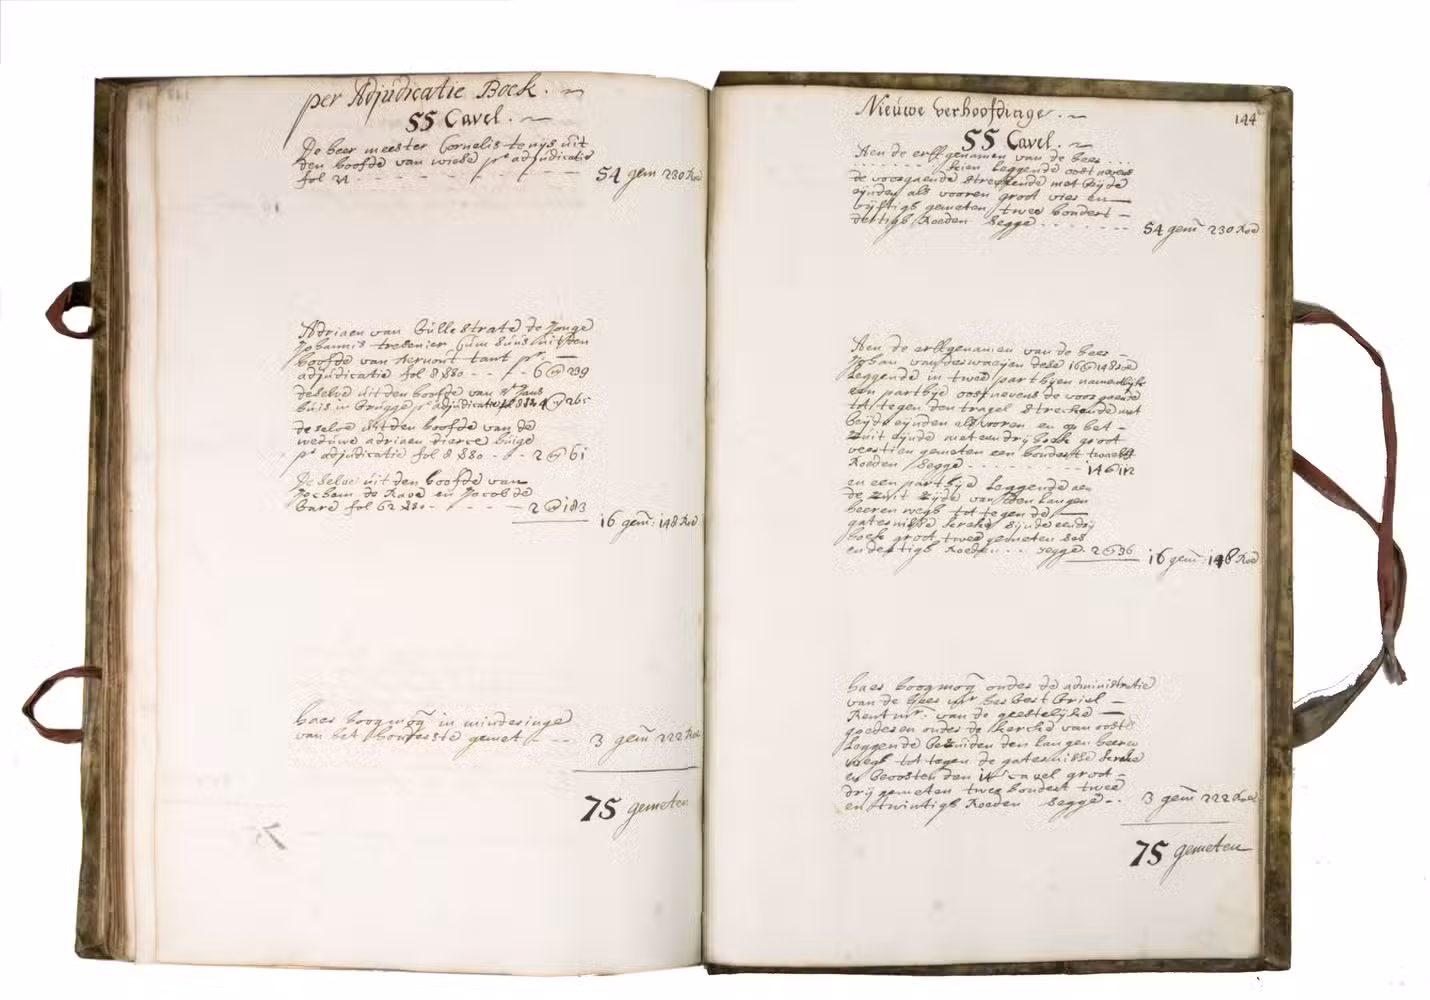 per Adjudicatie Boek.
55 Cavel.
De heer meester Cornelis uit
den hoofde van adjudicatie
fol 21 54 gem 230 Roe
Adriaen van Gullestrate de Jonge
Johannis tresenier cum suis uit den
hoofde van tant pr.
adjudicatie fol 8 880 6 @ 239
deselve uit den hoofde van
huis in Brugge pr adjudicatie 4 @ 265
deselve uit den hoofde van de
weduwe adriaen
pr adjudicatie fol 8 880 2 @ 61
De selve uit den hoofde van
Jochem de en Jacob de
fol 62 880 2 @ 183
16 gem: 148 Roe
haer hoogmog in minderinge
van het gemet 3 gem 222 Roe
75 gemeten
144
Nieuwe verhoofdinge.
55 Cavel.
Aen de erffgenamen van de heer
leggende oost nevens
de voorgaende streckende met beijde
eijnden als vooren groot vier en
vijftigh gemeten twee hondert
dertigh Roeden segge 54 gem 230 Roe
Aen de erffgenamen van de heer
Johan dese 16 @ 148 roe
Leggende in twee partijen namentlijk
een partije oost nevens de voorgaende
tot tegen den tragel streckende met
beijde eijnden als vooren en op het
zuit eijnde met een drij hoek groot
veertien gemeten een hondert twaelf
Roeden segge 14 @ 112
en een partije Leggende aen
de zuit zijde van den Langen
heeren wegh tot tegen de
gaternisse kercke sijnde een drij
hoek groot twee gemeten ses
en dertigh Roeden segge 2 @ 36 16 gem 148 Roe
haer hoogmog onder de administratie
van de Heer
Rentmr van de geestelijke
goederen onder de kercke van
Leggende bezuiden den Langen heeren
wegh tot tegen de gaternisse kercke
en beoosten den 14 cavel groot
drij gemeten twee hondert twee
en twintigh Roeden segge 3 gem 222 Roe
75 gemeten